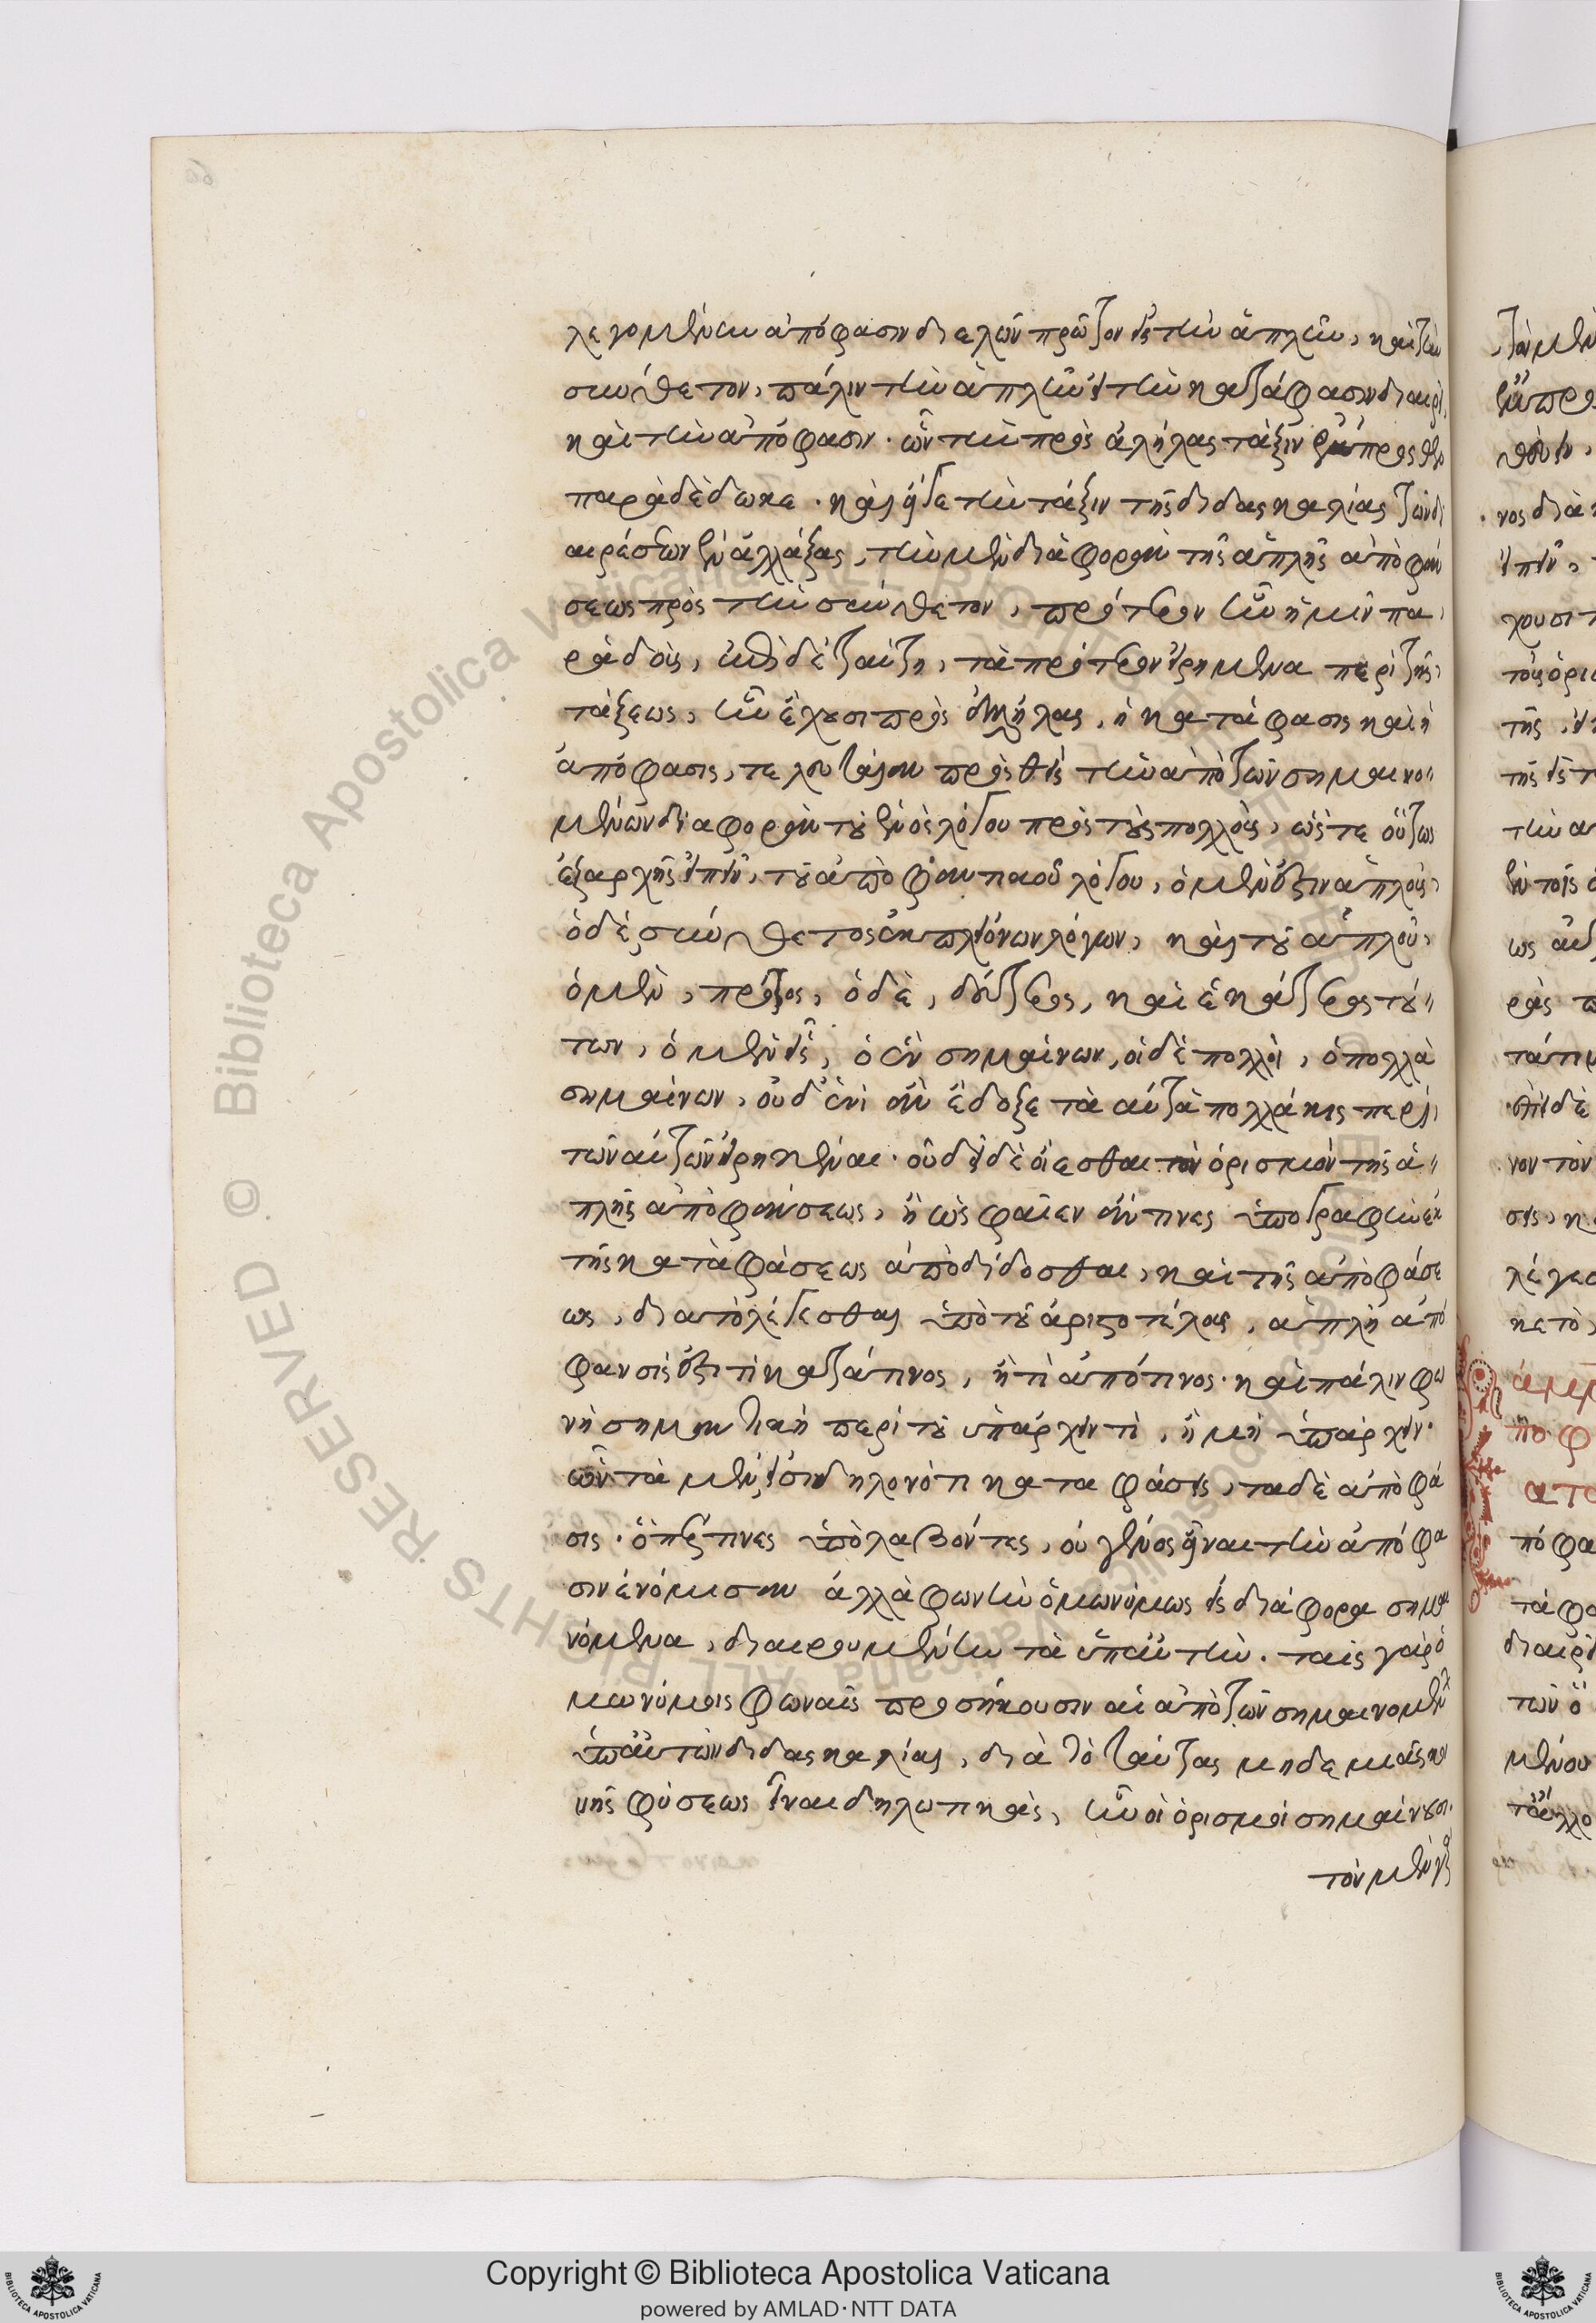 λεγομένην ἀπόφασιν διελὼν πρῶτον εἰς τὴν ἁπλῆν, καὶ τὴν
σύνθετον, πάλιν τὴν ἁπλῆν εἰς τὴν κατάφασιν διαιρεῖ,
καὶ τὴν ἀπόφασιν. ὧν τὴν πρὸς ἀλήλας τάξιν ἔμπροσθεν
παραδέδωκε. καὶ γε τὴν τάξιν τῆς διδασκαλίας τῶν δι
αιρέσεων ἐναλλάξας, τὴν μὲν διαφορὰν τῆς ἁπλῆς ἀποφάν
σεως πρὸς τὴν σύνθετον, πρότερον ἣν ἡμῖν πα
ραδοὺς, ἐπὶ δὲ ταύτη, τὰ πρότερον εἰρημένα περὶ τῆς
τάξεως, ἣν ἔχουσι πρὸς ἀλλήλας, ἡ κατάφασις καὶ ἡ
ἀπόφασις, τελευταίαν προσθεὶς τὴν ἀπὸ τῶν σημαινο
μένων διαφορὰν τοῦ ἑνὸς λόγου πρὸς τοὺς πολλοὺς, ὥστε οὕτως
ἐξαρχῆς εἰπεῖν, τοῦ ἀποφαντικοῦ λόγου, ὁ μὲν ἐστιν ἁπλοῦς,
ὁ δὲ σύνθετος ἐκ πλειόνων λόγων, καὶ τοῦ ἁπλοῦ,
ὁ μὲν, πρῶτος, ὁ δὲ, δεύτερος, καὶ ἑκάτερος τού
των, ὁ μὲν εἷς, ὁ ἓν σημαίνων, οἱ δὲ πολλοὶ, ὁ πολλὰ
σημαίνων, οὐδενὶ ἂν ἔδοξε τὰ αὐτὰ πολλάκις περὶ
τῶν αὐτῶν εἰρηκέναι. οὐ δεῖ δὲ οἴεσθαι τὸν ὁρισμὸν τῆς ἁ
πλῆς ἀποφάνσεως, ἢ ὡς φαῖεν ἄν τινες ὑπογραφὴν ἐκ
τῆς καταφάσεως ἀποδίδοσθαι, καὶ τῆς ἀποφάσε
ως, διατὸ λέγεσθαι ὑπὸ τοῦ ἀριστοτέλους, ἁπλῆ ἀπό
φανσίς ἐστι τὶ κατά τινος, ἢ τὶ ἀπό τινος. καὶ πάλιν φω
νὴ σημαντικὴ περὶ τοῦ ὑπάρχειν τὶ, ἢ μὴ ὑπάρχειν.
ὧν τὰ μὲν εἰσὶ δηλονότι καταφάσεις, τὰ δὲ ἀποφά
σις. ὅπερ τινες ὑπολαβόντες, οὐ γένος εἶναι τὴν ἀπόφα
σιν ἐνόμισαν ἀλλὰ φωνὴν ὁμωνύμως εἰς διάφορα σημαι
νόμενα, διαιρουμένην τὰ ὑπ' αὐτὴν. ταῖς γὰρ ὁ
μωνύμοις φωναῖς προσήκουσιν αἱ ἀπὸ τῶν σημαινομένων
ὑπ' αὐτῶν διδασκαλίαι, διὰ τὸ ταύτας μηδεμιᾶς κοι
νῆς φύσεως εἶναι δηλωτικὰς, ἣν οἱ ὁρισμοὶ σημαίνουσι.
τὸν μὲν γὰρ